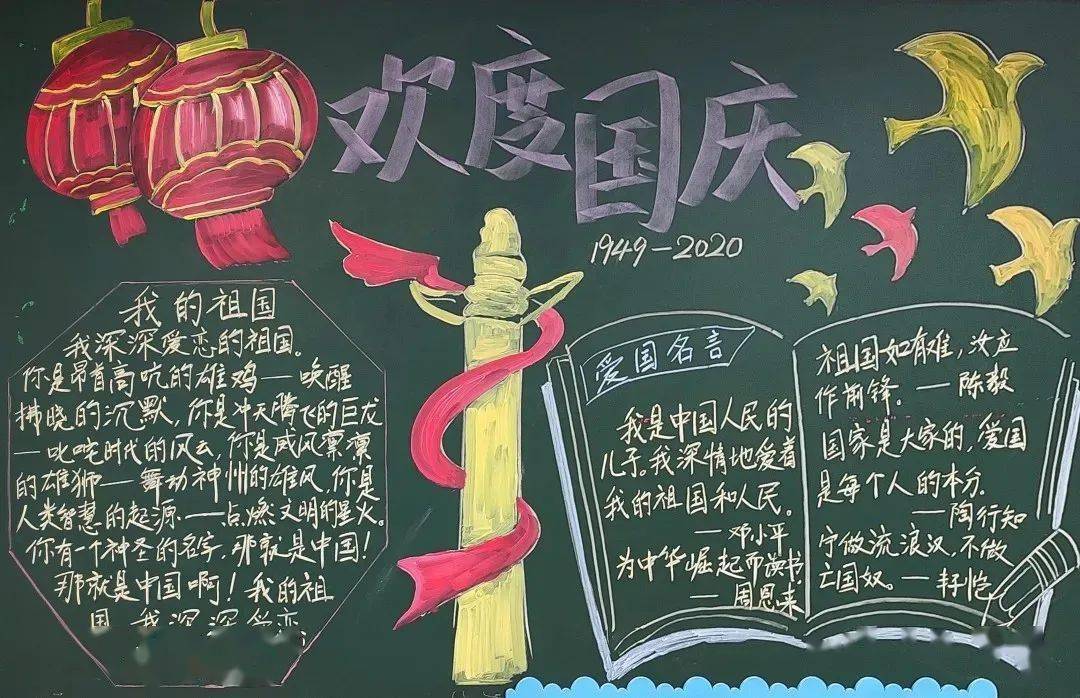 欢度国庆
1949-2020
我的祖国
我深深爱恋的祖国。
你是昂首高吭的雄鸡——唤醒
拂晓的沉默,你是冲天腾飞的巨龙
——叱咤时代的风云,你是威风凛凛
的雄狮——舞动神州的雄风,你是
人类智慧的起源——点燃文明的星火。
你有一个神圣的名字,那就是中国!
那就是中国啊!我的祖
国,我深深
爱国名言
我是中国人民的
儿子。我深情地爱着
我的祖国和人民。
——邓小平
为中华崛起而读书
——周恩来
祖国如有难,汝应
作前锋。——陈毅
国家是大家的,爱国
是每个人的本分.
——陶行知
宁做流浪汉,不做
亡国奴。——